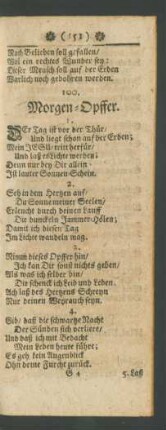 ( 151 )
Nach Belieben soll gefallen/
Weil ein rechtes Wunder sey:
Dieser Mensch soll auf der Erden
Warlich noch gebohren werden.
100.
Morgen-Opffer.
1.
DEr Tag ist vor der Thür/
Und liegt schon auf der Erden;
Mein JESU tritt herfür/
Und laß es Lichte werden;
Denn nur bey Dir allein
Ist lauter Sonnen-Schein.
2.
Geh in dem Hertzen auf/
Du Sonne meiner Seelen/
Erleucht durch deinen Lauff
Die dunckeln Jammer-Hölen;
Damit ich diesen Tag
Im Lichte wandeln mag.
3.
Nimm dieses Opffer hin/
Ich kan Dir sonst nichts geben/
Als was ich selber bin/
Dir schenck ich Leib und Leben.
Ach laß des Hertzens Schreyn
Nur deinen Weyrauch seyn.
4.
Gib/ daß die schwartze Nacht
Der Sünden sich verliere/
Und daß ich mit Bedacht
Mein Leben heute führe;
Es geh kein Augenblick
Ohn deine Furcht zurück.
G 4
5. Laß